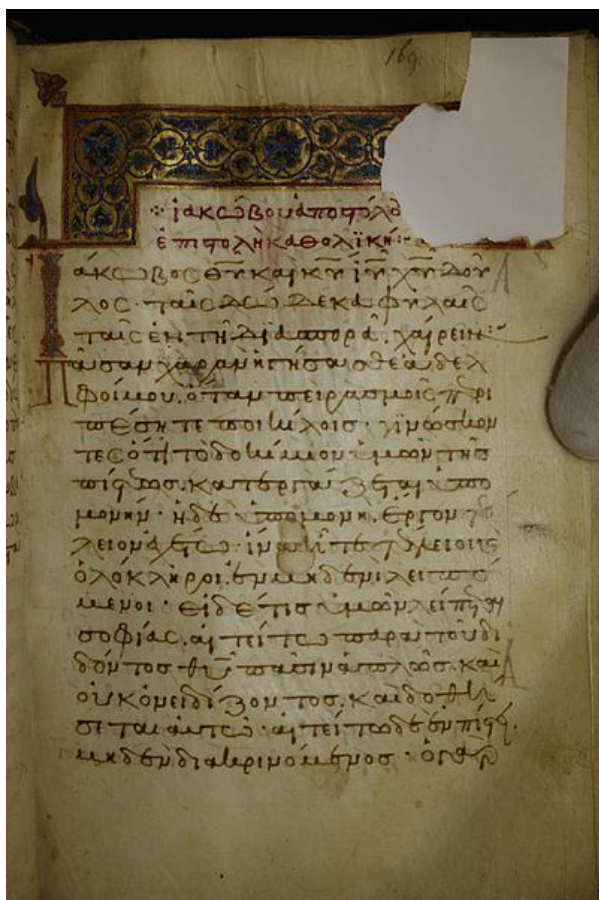 169
ἰακώβου ἀποστόλο
ἐπιστολὴ καθολική
Ιάκωβος θυ καὶ κυ ιυ χυ δοῦ
λος· ταῖς δώδεκα φυλαῖς
ταῖς ἐν τῆ διασπορᾶ. χαίρειν·
Πᾶσαν χαρὰν ἡγήσασθε ἀδελ
φοί μου. ὅταν πειρασμοῖς περι
πέσητε ποικίλοις· γινώσκον
τες ὅτι τὸ δοκίμιον ὑμῶν τῆς
πίστεως. κατεργάζεται ὑπο
μονήν· ἡ δὲ ὑπομονὴ. ἔργον τε
λειον ἐχέτω· ἵνα ἦτε τέλειοι
ὁλόκληροι. ἐν μηδενὶ λειπό
μενοι· εἰ δέ τις ὑμῶν λείπεται
σοφίας. αἰτείτω παρὰ τοῦ δι
δόντος θυ πᾶσιν ἁπλῶς. καὶ
οὐκ ὀνειδίζοντος. καὶ δοθή
σεται αὐτῶ· αἰτείτω δὲ ἐν πίστει.
μηδὲν διακρινόμενος· ὁ γὰρ